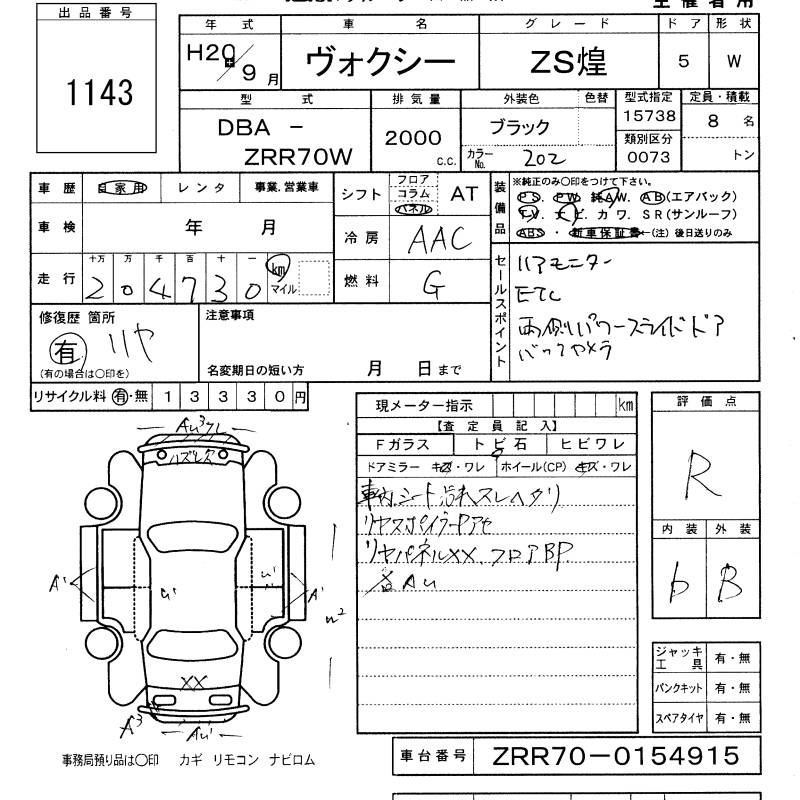 出品番号
1143
年式 車名 グレード ドア 形状
H20/9月 ヴォクシー ZS煌 5 W
型式 排気量 外装色 色替 型式指定 定員・積載
DBA - 2000 c.c. ブラック 15738 8 名
類別区分
ZRR70W カラーNo. 202 0073 トン
車歴 自家用 レンタ 事業.営業車
シフト フロア コラム パネル AT
車検 年 月
冷房 AAC
走行 十万 万 千 百 十 一
204730 km マイル
燃料 G
装備品
※純正のみ〇印をつけて下さい。
PS. PW. 純AW. AB(エアバック)
TV. ナビ. カワ. SR(サンルーフ)
ABS・新車保証書←(注)後日送りのみ
セールスポイント
リアモニター
ETC
両側パワースライドドア
バックカメラ
修復歴 箇所
有 リヤ
(有の場合は〇印を)
注意事項
名変期日の短い方 月 日まで
リサイクル料 有・無 13330円
現メーター指示 km
【査定員記入】
Fガラス トビ石 ヒビワレ
ドアミラー キズ・ワレ ホイール(CP) キズ・ワレ
車内シート汚れスレヘタリ
リヤスポイラー
リヤパネルXX、フロアBP
各AU
評価点
R
内装 外装
b B
ジャッキ工具 有・無
パンクキット 有・無
スペアタイヤ 有・無
ハズレ
A'
A'
XX
A3
事務局預り品は〇印 カギ リモコン ナビロム
車台番号 ZRR70-0154915